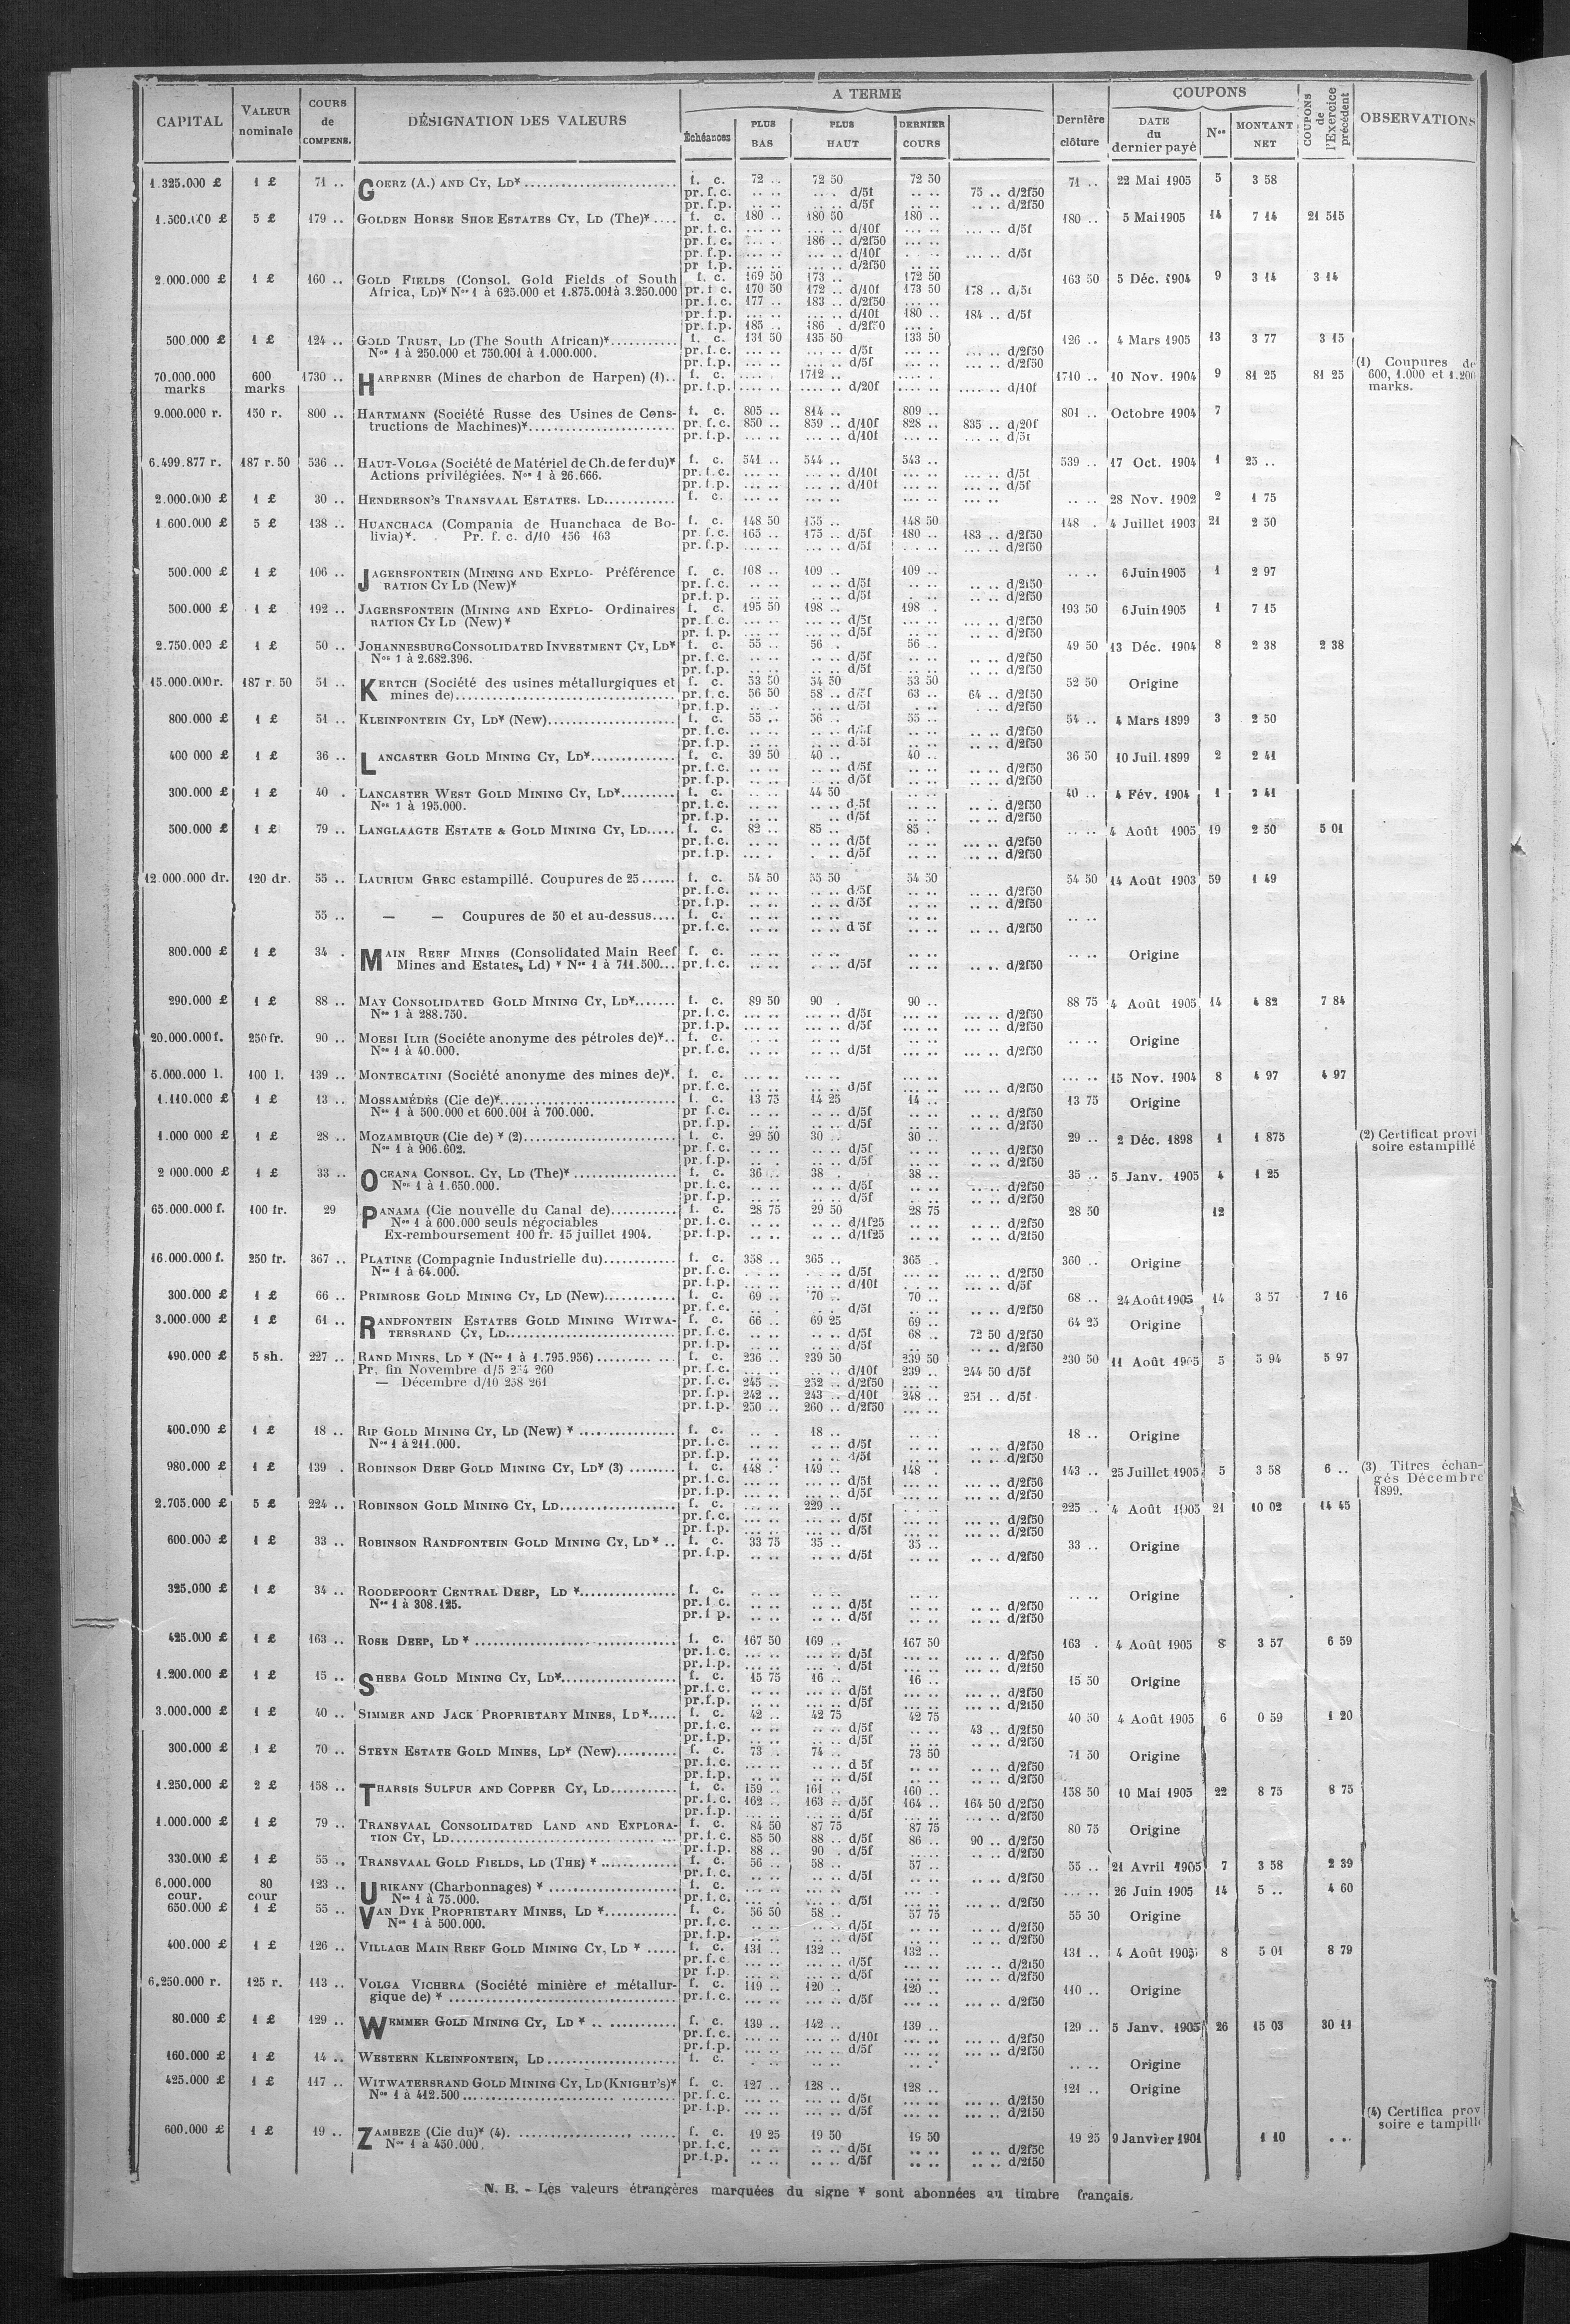 CAPITAL | VALEUR nominale | COURS de COMPENS. | DÉSIGNATION DES VALEURS | A TERME | Dernière clôture | COUPONS | COUPONS de l'Exercice précédent | OBSERVATIONS
Échéances | PLUS BAS | PLUS HAUT | DERNIER COURS | DATE du dernier payé | Nos | MONTANT NET
1.325.000 £ 1 £ 71 .. GOERZ (A.) AND CY, LD* f. c. 72 .. 72 50 72 50 71 .. 22 Mai 1905 5 3 58
pr. f. c. .. .. .. . d/5f .. .. 75 .. d/2f50
pr. f. p. .. .. .. .. d/5f .. .. .. .. d/2f50
5 £ 179 .. GOLDEN HORSE SHOE ESTATES CY, LD (The)* f. c. 180 .. 180 50 180 .. 180 .. 5 Mai 1905 14 7 14 21 515
pr. f. c. ... .. ... .. d/10f ... .. ... .. d/5f
pr. f. c. 186 .. d/2f50 ... ..
pr. f. p. ... .. ... .. d/10f ... .. d/5f
pr. f. p. ... .. ... .. d/2f50
2.000.000 £ 1 £ 160 .. GOLD FIELDS (Consol. Gold Fields of South f. c. 169 50 173 .. 172 50 163 50 5 Déc. 1904 9 3 14 3 14
Africa, LD)* Nos 1 à 625.000 et 1.875.001 à 3.250.000 pr. f. c. 170 50 172 .. d/10f 173 50 178 .. d/5f
pr. f. c. 177 .. 183 .. d/2f50 ... ..
pr. f. p. ... .. ... .. d/10f 180 .. 184 .. d/5f
pr. f. p. 185 .. 186 . d/2f50
500.000 £ 1 £ 124 .. GOLD TRUST, LD (The South African)* f. c. 131 50 135 50 133 50 126 .. 4 Mars 1905 13 3 77 3 15
Nos 1 à 250.000 et 750.001 à 1.000.000. pr. f. c. ... .. ... .. d/5f ... .. ... .. d/2f50
pr. f. p. ... .. ... .. d/5f ... .. ... .. d/2f50
70.000.000 marks 600 marks 1730 .. HARPENER (Mines de charbon de Harpen) (1).. f. c. 1712 .. 1710 .. 10 Nov. 1904 9 81 25 81 25 (1) Coupures de 600, 1.000 et 1.200 marks.
pr. f. p. .... .. .... .. d/20f .... .. ... .. d/10f
9.000.000 r. 150 r. 800 .. HARTMANN (Société Russe des Usines de Cons- f. c. 805 .. 814 .. 809 .. 801 .. Octobre 1904 7
tructions de Machines)* pr. f. c. 850 .. 859 .. d/10f 828 .. 835 .. d/20f
pr. f. p. ... .. ... .. d/10f ... .. ... .. d/5f
6.499.877 r. 187 r. 50 536 .. HAUT-VOLGA (Société de Matériel de Ch. de fer du)* f. c. 541 .. 544 .. 543 .. 539 .. 17 Oct. 1904 1 25 ..
Actions privilégiées. Nos 1 à 26.666. pr. f. c. ... .. ... .. d/10f ... .. ... .. d/5f
pr. f. p. ... .. ... .. d/10f ... .. ... .. d/5f
2.000.000 £ 1 £ 30 .. HENDERSON'S TRANSVAAL ESTATES. LD f. c. ... .. ... .. ... .. ... .. .. .. 28 Nov. 1902 2 1 75
1.600.000 £ 5 £ 138 .. HUANCHACA (Compania de Huanchaca de Bo- f. c. 148 50 155 .. 148 50 148 . 4 Juillet 1903 21 2 50
livia)*. Pr. f. c. d/10 156 163 pr. f. c. 165 .. 175 .. d/5f 180 .. 183 .. d/2f50
pr. f. p. ... .. ... .. d/5f ... .. d/2f50
500.000 £ 1 £ 106 .. JAGERSFONTEIN (MINING AND EXPLO- Préférence f. c. 108 .. 109 .. 109 .. .. .. 6 Juin 1905 1 2 97
RATION CY LD (New)* pr. f. c. .. .. .. .. d/5f .. .. .. .. d/2f50
pr. f. p. .. .. .. .. d/5f .. .. .. d/2f50
500.000 £ 1 £ 192 .. JAGERSFONTEIN (MINING AND EXPLO- Ordinaires f. c. 195 50 198 .. 198 . 193 50 6 Juin 1905 1 7 15
RATION CY LD (New)* pr. f. c. ... .. ... .. d/5f ... .. ... .. d/2f50
pr. f. p. ... .. ... .. d/5f .. .. .. .. d/2f50
2.750.000 £ 1 £ 50 .. JOHANNESBURG CONSOLIDATED INVESTMENT CY, LD* f. c. 55 .. 56 . 56 .. 49 50 13 Déc. 1904 8 2 38 2 38
Nos 1 à 2.682.396. pr. f. c. .. .. .. .. d/5f .. .. .. .. d/2f50
pr. f. p. .. .. .. .. d/5f .. .. .. .. d/2f50
15.000.000 r. 187 r. 50 51 .. KERTCH (Société des usines métallurgiques et f. c. 53 50 54 50 53 50 52 50 Origine
mines de) pr. f. c. 56 50 58 .. d/5f 63 .. 64 .. d/2f50
pr. f. p. .. . .. .. d/5f . .. . .. d/2f50
800.000 £ 1 £ 51 .. KLEINFONTEIN CY, LD* (New) f. c. 55 .. 56 .. 55 .. 54 .. 4 Mars 1899 3 2 50
pr. f. c. .. .. .. .. d/5f .. .. .. .. d/2f50
pr. f. p. .. .. .. .. d/5f .. .. .. .. d/2f50
400 000 £ 1 £ 36 .. LANCASTER GOLD MINING CY, LD* f. c. 39 50 40 .. 40 .. 36 50 10 Juil. 1899 2 2 41
pr. f. c. .. .. .. .. d/5f .. .. .. .. d/2f50
pr. f. p. .. .. . .. d/5f .. .. .. .. d/2f50
300.000 £ 1 £ 40 . LANCASTER WEST GOLD MINING CY, LD* f. c. 44 50 40 .. 4 Fév. 1904 1 2 41
Nos 1 à 195.000. pr. f. c. .. .. .. .. d/5f .. .. .. .. d/2f50
pr. f. p. .. .. .. .. d/5f .. .. .. .. d/2f50
500.000 £ 1 £ 79 .. LANGLAAGTE ESTATE & GOLD MINING CY, LD f. c. 82 .. 85 .. 85 . .. .. 4 Août 1905 19 2 50 5 01
pr. f. c. .. .. .. .. d/5f .. .. ... .. d/2f50
pr. f. p. .. . . .. d/5f .. .. ... .. d/2f50
12.000.000 dr. 120 dr. 55 .. LAURIUM GREC estampillé. Coupures de 25 f. c. 54 50 55 50 54 50 54 50 14 Août 1903 59 1 49
pr. f. c. .. .. .. .. d/5f .. .. .. .. d/2f50
pr. f. p. .. .. .. .. d/5f .. .. .. .. d/2f50
55 .. — — Coupures de 50 et au-dessus f. c. .. .. .. .. .. .. .. ..
pr. f. c. .. .. .. .. d/5f .. .. .. .. d/2f50
800.000 £ 1 £ 34 . MAIN REEF MINES (Consolidated Main Reef f. c. .. .. .. .. .. .. .. .. Origine
Mines and Estates, Ld) * Nos 1 à 711.500 pr. f. c. .. .. .. .. d/5f .. .. .. .. d/2f50
290.000 £ 1 £ 88 .. MAY CONSOLIDATED GOLD MINING CY, LD* f. c. 89 50 90 . 90 .. 88 75 4 Août 1905 14 4 82 7 84
Nos 1 à 288.750. pr. f. c. ... .. ... .. d/5f ... .. ... .. d/2f50
pr. f. p. ... .. ... .. d/5f ... .. ... .. d/2f50
20.000.000 f. 250 fr. 90 .. MOESI ILIR (Sociéte anonyme des pétroles de)* f. c. .. .. .. .. .. .. .. .. Origine
Nos 1 à 40.000. pr. f. c. ... .. ... .. d/5f ... .. ... .. d/2f50
5.000.000 l. 100 l. 139 .. MONTECATINI (Société anonyme des mines de)*. f. c. ... .. ... .. ... .. ... .. 15 Nov. 1904 8 4 97 4 97
pr. f. c. ... .. ... .. d/5f ... .. ... .. d/2f50
1.110.000 £ 1 £ 13 .. MOSSAMÉDÈS (Cie de)* f. c. 13 75 14 25 14 .. 13 75 Origine
Nos 1 à 500.000 et 600.001 à 700.000. pr f. c. .. .. .. .. d/5f .. .. .. .. d/2f50
pr. f. p. .. .. .. .. d/5f .. .. .. .. d/2f50
1.000 000 £ 1 £ 28 .. MOZAMBIQUE (Cie de) * (2) f. c. 29 50 30 .. 30 .. 29 .. 2 Déc. 1898 1 1 875 (2) Certificat provi
Nos 1 à 906.602. pr. f. c. .. .. .. .. d/5f .. .. .. .. d/2f50 soire estampillé
pr. f. p. .. . .. .. d/5f .. .. .. .. d/2f50
2 000.000 £ 1 £ 33 .. OCEANA CONSOL. CY, LD (The)* f. c. 36 .. 38 . 38 .. 35 .. 5 Janv. 1905 4 1 25
Nos 1 à 1.650.000. pr. f. c. .. .. .. .. d/5f .. .. .. .. d/2f50
pr. f. p. .. .. .. .. d/5f .. .. .. .. d/2f50
65.000.000 f. 100 fr. 29 PANAMA (Cie nouvelle du Canal de) f. c. 28 75 29 50 28 75 28 50 12
Nos 1 à 600.000 seuls négociables pr. f. c. .. .. .. .. d/1f25 .. .. .. .. d/2f50
Ex-remboursement 100 fr. 15 juillet 1904. pr. f. p. .. .. .. .. d/1f25 .. .. .. .. d/2f50
16.000.000 f. 250 fr. 367 .. PLATINE (Compagnie Industrielle du) f. c. 358 .. 365 .. 365 . 360 .. Origine
Nos 1 à 64.000. pr. f. c. ... .. d/5f ... .. d/2f50
pr. f. p. ... .. ... .. d/10f ... .. ... .. d/5f
300.000 £ 1 £ 66 .. PRIMROSE GOLD MINING CY, LD (New) f. c. 69 .. 70 .. 70 .. 68 .. 24 Août 1905 14 3 57 7 16
pr. f. c. .. . . . d/5f .. .. .. .. d/2f50
3.000.000 £ 1 £ 61 .. RANDFONTEIN ESTATES GOLD MINING WITWA- f. c. 66 .. 69 25 69 .. 64 25 Origine
TERSRAND CY, LD pr. f. c. .. .. .. .. d/5f 68 .. 72 50 d/2f50
pr. f. p. .. .. .. .. d/5f .. .. .. .. d/2f50
490.000 £ 5 sh. 227 .. RAND MINES, LD * (Nos 1 à 1.795.956) f. c. 236 .. 239 50 239 50 230 50 11 Août 1905 5 5 94 5 97
Pr. fin Novembre d/5 254 260 pr. f. c. ... .. ... .. d/10f 239 .. 244 50 d/5f
— Décembre d/10 258 261 pr. f. c. 245 .. 252 .. d/2f50 ... ..
pr. f. p. 242 .. 243 .. d/10f 248 .. 251 .. d/5f
pr. f. p. 250 .. 260 .. d/2f50 ... ..
400.000 £ 1 £ 18 .. RIP GOLD MINING CY, LD (New) * f. c. .. . 18 .. 18 .. Origine
Nos 1 à 211.000. pr. f. c. .. .. .. .. d/5f .. .. .. .. d/2f50
pr. f. p. .. .. .. .. d/5f .. .. .. .. d/2f50
980.000 £ 1 £ 139 . ROBINSON DEEP GOLD MINING CY, LD* (3) f. c. 148 .. 149 .. 148 . 143 .. 25 Juillet 1905 5 3 58 6 .. (3) Titres échan-
pr. f. c. ... .. ... .. d/5f ... .. ... .. d/2f50 gés Décembre
pr. f. p. ... .. ... .. d/5f ... .. ... .. d/2f50 1899.
2.705.000 £ 5 £ 224 .. ROBINSON GOLD MINING CY, LD f. c. 229 .. 225 .. 4 Août 1905 21 10 02 14 45
pr. f. c. ... .. ... .. d/5f ... .. ... .. d/2f50
pr. f. p. ... .. ... .. d/5f ... .. ... .. d/2f50
600.000 £ 1 £ 33 .. ROBINSON RANDFONTEIN GOLD MINING CY, LD* .. f. c. 33 75 35 .. 35 .. 33 .. Origine
pr. f. p. .. .. .. .. d/5f .. .. .. .. d/2f50
325.000 £ 1 £ 34 .. ROODEPOORT CENTRAL DEEP, LD * f. c. .. .. .. .. .. .. .. .. Origine
Nos 1 à 308.125. pr. f. c. .. .. .. .. d/5f .. .. .. .. d/2f50
pr. f. p. .. .. .. .. d/5f .. .. .. .. d/2f50
425.000 £ 1 £ 163 .. ROSE DEEP, LD * f. c. 167 50 169 .. 167 50 163 . 4 Août 1905 8 3 57 6 59
pr. f. c. ... .. ... .. d/5f ... .. ... .. d/2f50
pr. f. p. ... .. ... . d/5f ... .. ... .. d/2f50
1.200.000 £ 1 £ 15 .. SHEBA GOLD MINING CY, LD* f. c. 15 75 16 .. 16 .. 15 50 Origine
pr. f. c. .. .. ... .. d/5f ... .. ... .. d/2f50
pr. f. p. .. .. ... .. d/5f ... .. ... .. d/2f50
3.000.000 £ 1 £ 40 .. SIMMER AND JACK PROPRIETARY MINES, LD* f. c. 42 .. 42 75 42 75 40 50 4 Août 1905 6 0 59 1 20
pr. f. c. .. .. .. .. d/5f .. .. 43 .. d/2f50
pr. f. p. .. .. .. .. d/5f .. .. .. .. d/2f50
300.000 £ 1 £ 70 .. STEYN ESTATE GOLD MINES, LD* (New) f. c. 73 . 74 .. 73 50 71 50 Origine
pr. f. c. .. .. .. .. d 5f .. .. .. .. d/2f50
pr. f. p. .. .. .. .. d/5f .. .. .. .. d/2f50
1.250.000 £ 2 £ 158 .. THARSIS SULFUR AND COPPER CY, LD f. c. 159 .. 161 .. 160 .. 158 50 10 Mai 1905 22 8 75 8 75
pr. f. c. 162 .. 163 .. d/5f 164 .. 164 50 d/2f50
pr. f. p. ... .. ... .. d/5f ... .. ... .. d/2f50
1.000.000 £ 1 £ 79 .. TRANSVAAL CONSOLIDATED LAND AND EXPLORA- f. c. 84 50 87 75 87 75 80 75 Origine
TION CY, LD pr. f. c. 85 50 88 .. d/5f 86 .. 90 .. d/2f50
pr. f. p. 88 .. 90 . d/5f .. .. .. .. d/2f50
330.000 £ 1 £ 55 .. TRANSVAAL GOLD FIELDS, LD (THE) * f. c. 56 .. 58 .. 57 .. 55 .. 21 Avril 1905 7 3 58 2 39
pr. f. c. .. .. .. .. d/5f .. .. .. .. d/2f50
6.000.000 cour. 80 cour 123 .. URIKANY (Charbonnages) * f. c. ... .. ... .. ... .. ... .. 26 Juin 1905 14 5 .. 4 60
Nos 1 à 75.000. pr. f. c. ... .. ... .. d/5f ... .. ... .. d/2f50
650.000 £ 1 £ 55 .. VAN DYK PROPRIETARY MINES, LD * f. c. 56 50 58 .. 57 75 55 50 Origine
Nos 1 à 500.000. pr. f. c. .. .. .. .. d/5f .. .. .. .. d/2f50
pr. f. p. .. .. .. .. d/5f .. .. .. .. d/2f50
400.000 £ 1 £ 126 .. VILLAGE MAIN REEF GOLD MINING CY, LD * f. c. 131 .. 132 .. 132 .. 131 .. 4 Août 1905 8 5 01 8 79
pr. f. c ... .. ... .. d/5f ... .. ... .. d/2f50
pr f. p. ... .. ... .. d/5f ... .. ... .. d/2f50
6.250.000 r. 125 r. 113 .. VOLGA VICHERA (Société minière et métallur- f. c. 119 .. 120 . 120 .. 110 .. Origine
gique de) * pr. f. c. ... .. ... .. d/5f ... .. ... .. d/2f50
80.000 £ 1 £ 129 .. WEMMER GOLD MINING CY, LD * f. c. 139 .. 142 .. 139 .. 129 .. 5 Janv. 1905 26 15 03 30 11
pr. f. c. ... .. ... .. d/10f ... .. ... .. d/2f50
pr. f. p. ... .. ... .. d/5f ... .. ... .. d/2f50
160.000 £ 1 £ 14 .. WESTERN KLEINFONTEIN, LD f. c. .. .. .. .. Origine
425.000 £ 1 £ 117 .. WITWATERSRAND GOLD MINING CY, LD (KNIGHT'S)* f. c. 127 .. 128 .. 128 .. 121 .. Origine
Nos 1 à 412.500 pr. f. c. ... .. ... .. d/5f ... .. ... .. d/2f50
pr. f. p. ... .. ... .. d/5f ... .. ... .. d/2f50 (4) Certifica prov
600.000 £ 1 £ 19 .. ZAMBEZE (Cie du)* (4). f. c. 19 25 19 50 19 50 19 25 9 Janvier 1901 1 10 ... soire e tampillé
Nos 1 à 450.000. pr. f. c. .. .. .. .. d/5f .. .. .. .. d/2f50
pr. f. p. .. .. .. .. d/5f .. .. .. .. d/2f50
N. B. - Les valeurs étrangères marquées du signe * sont abonnées au timbre français.